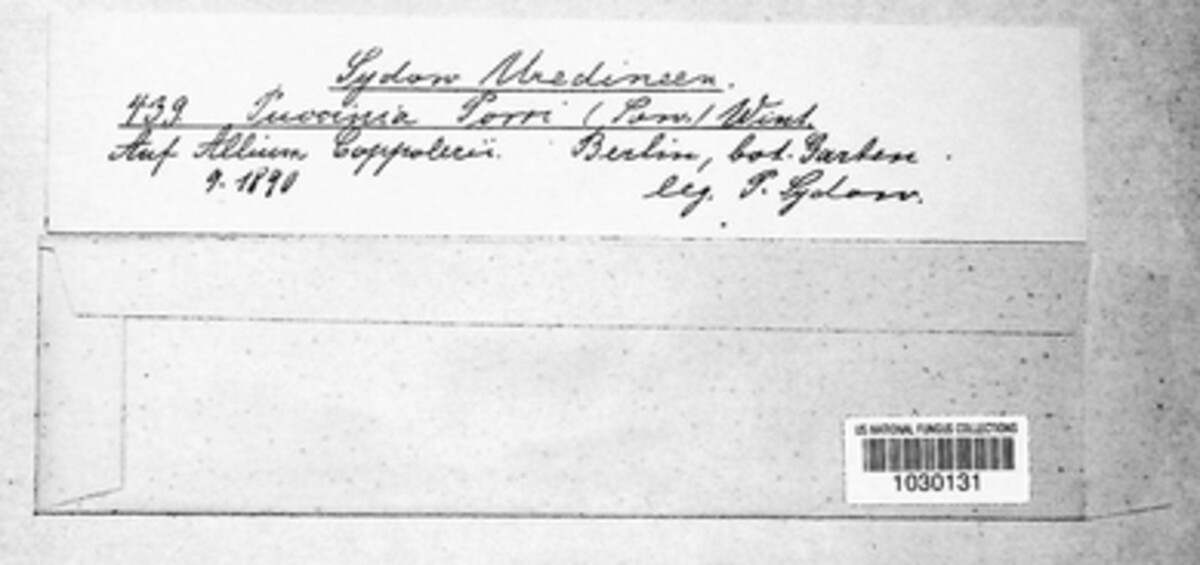 Sydow Uredineen.
439 Puccinia Porri (Sow.) Wint.
Auf Allium Coppolerii. Berlin, bot. Garten
9. 1890 leg. P. Sydow.
US NATIONAL FUNGUS COLLECTIONS
1030131